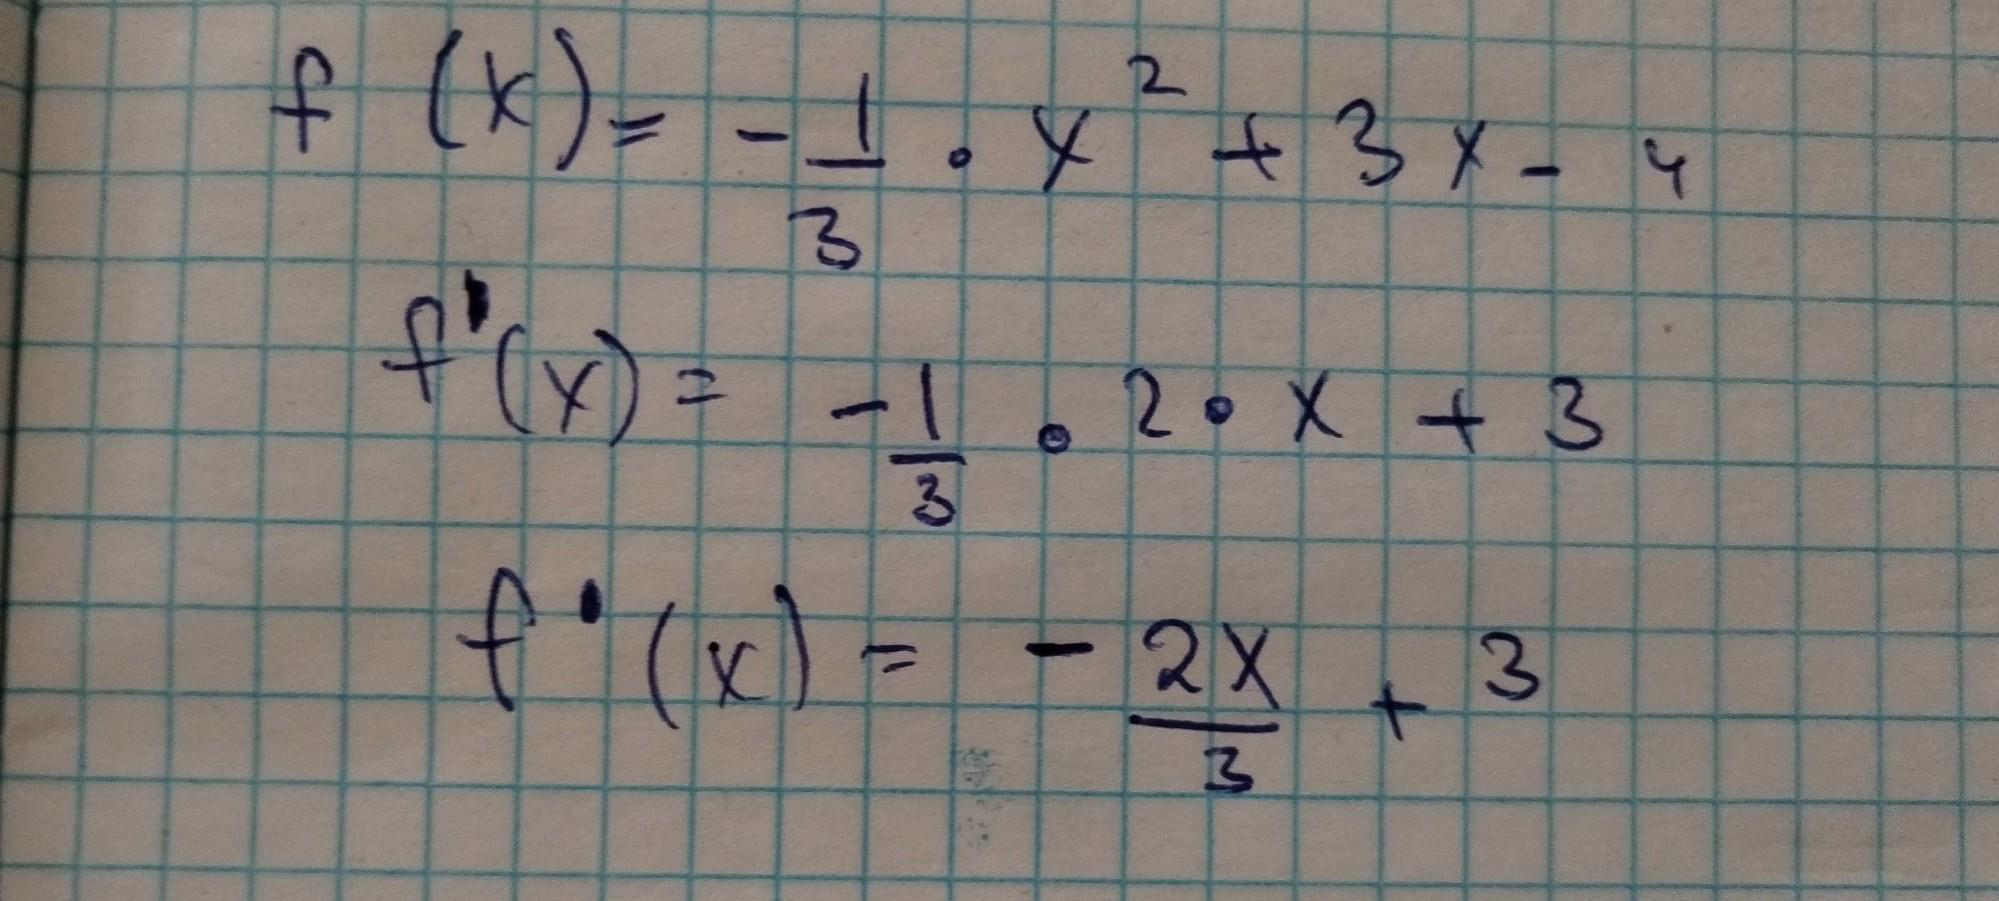 f (x) = - 1/3 • x² + 3x - 4
f'(x) = - 1/3 • 2 • x + 3
f'(x) = - 2x/3 + 3